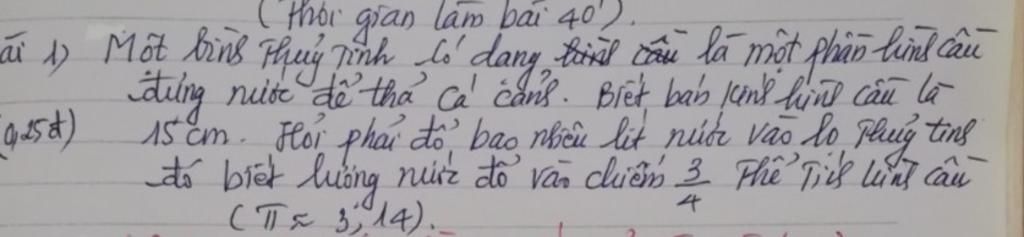 (Thời gian làm bài 40').
ài 1) Một bình Thuỷ Tinh có dạng là một phần hình cầu
đựng nước để thả cá cảnh. Biết bán kính hình cầu là
(0,25đ) 15cm. Hỏi phải đổ bao nhiêu lít nước vào lọ Thuỷ tinh
đó biết lượng nước đổ vào chiếm 3/4 Thể Tích hình cầu
(π ≈ 3,14).